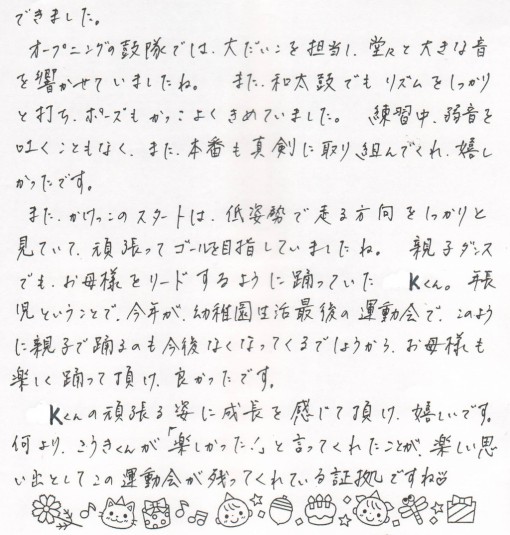 できました。
オープニングの鼓隊では、大だいこを担当し、堂々と大きな音
を響かせていましたね。 また、和太鼓でもリズムをしっかり
と打ち、ポーズもかっこよくきめていました。 練習中、弱音を
吐くこともなく、また、本番も真剣に取り組んでくれ、嬉し
かったです。
また、かけっこのスタートは、低姿勢で走る方向をしっかりと
見ていて、頑張ってゴールを目指していましたね。 親子ダンス
でも、お母様をリードするように踊っていた Kくん。年長
児ということで、今年が、幼稚園生活最後の運動会で、このよう
に親子で踊るのも今後なくなってくるでしょうから、お母様も
楽しく踊って頂け、良かったです。
Kくんの頑張る姿に成長を感じて頂け、嬉しいです。
何より、こうきくんが「楽しかった!」と言ってくれたことが、楽しい思
い出としてこの運動会が残ってくれている証拠ですね